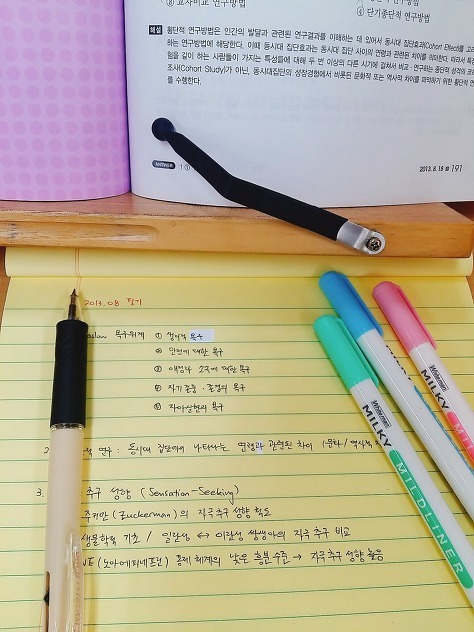 ③ 교차비교 연구방법
④ 단기종단적 연구방법
해설 횡단적 연구방법은 인간의 발달과 관련된 연구결과를 이해하는 데 있어서 동시대 집단효과(Cohort Effect)를
하는 연구방법에 해당한다. 이때 동시대 집단효과는 동시대 집단 사이의 연령과 관련된 차이를 의미한다. 따라서
험을 같이 하는 사람들이 가지는 특성들에 대해 두 번 이상의 다른 시기에 걸쳐서 비교·연구하는 종단적 성격의
조사(Cohort Study)가 아닌, 동시대집단의 성장경험에서 비롯된 문화적 또는 역사적 차이를 파악하기 위한 횡단적
를 수행한다.
ANSWER 1 ①
2013.8.18 191
2013.08 필기
aslow 욕구위계 ① 생리적 욕구
② 안전에 대한 욕구
③ 애정과 소속에 대한 욕구
④ 자기존중·존경의 욕구
⑤ 자아실현의 욕구
2. 연구 : 동시대 집단에서 나타나는 연령과 관련된 차이 (문화/역사적
3. 추구 성향 (Sensation-Seeking)
주커만(Zuckerman)의 자극추구 성향 척도
생물학적 기초 / 일란성 ↔ 이란성 쌍생아의 자극추구 비교
NE(노아에피네프린) 통제 체계의 낮은 흥분 수준 → 자극추구 성향 높음
Wellerman MILKY MILDLINER
Wellerman MILKY
Wellerman MILKY